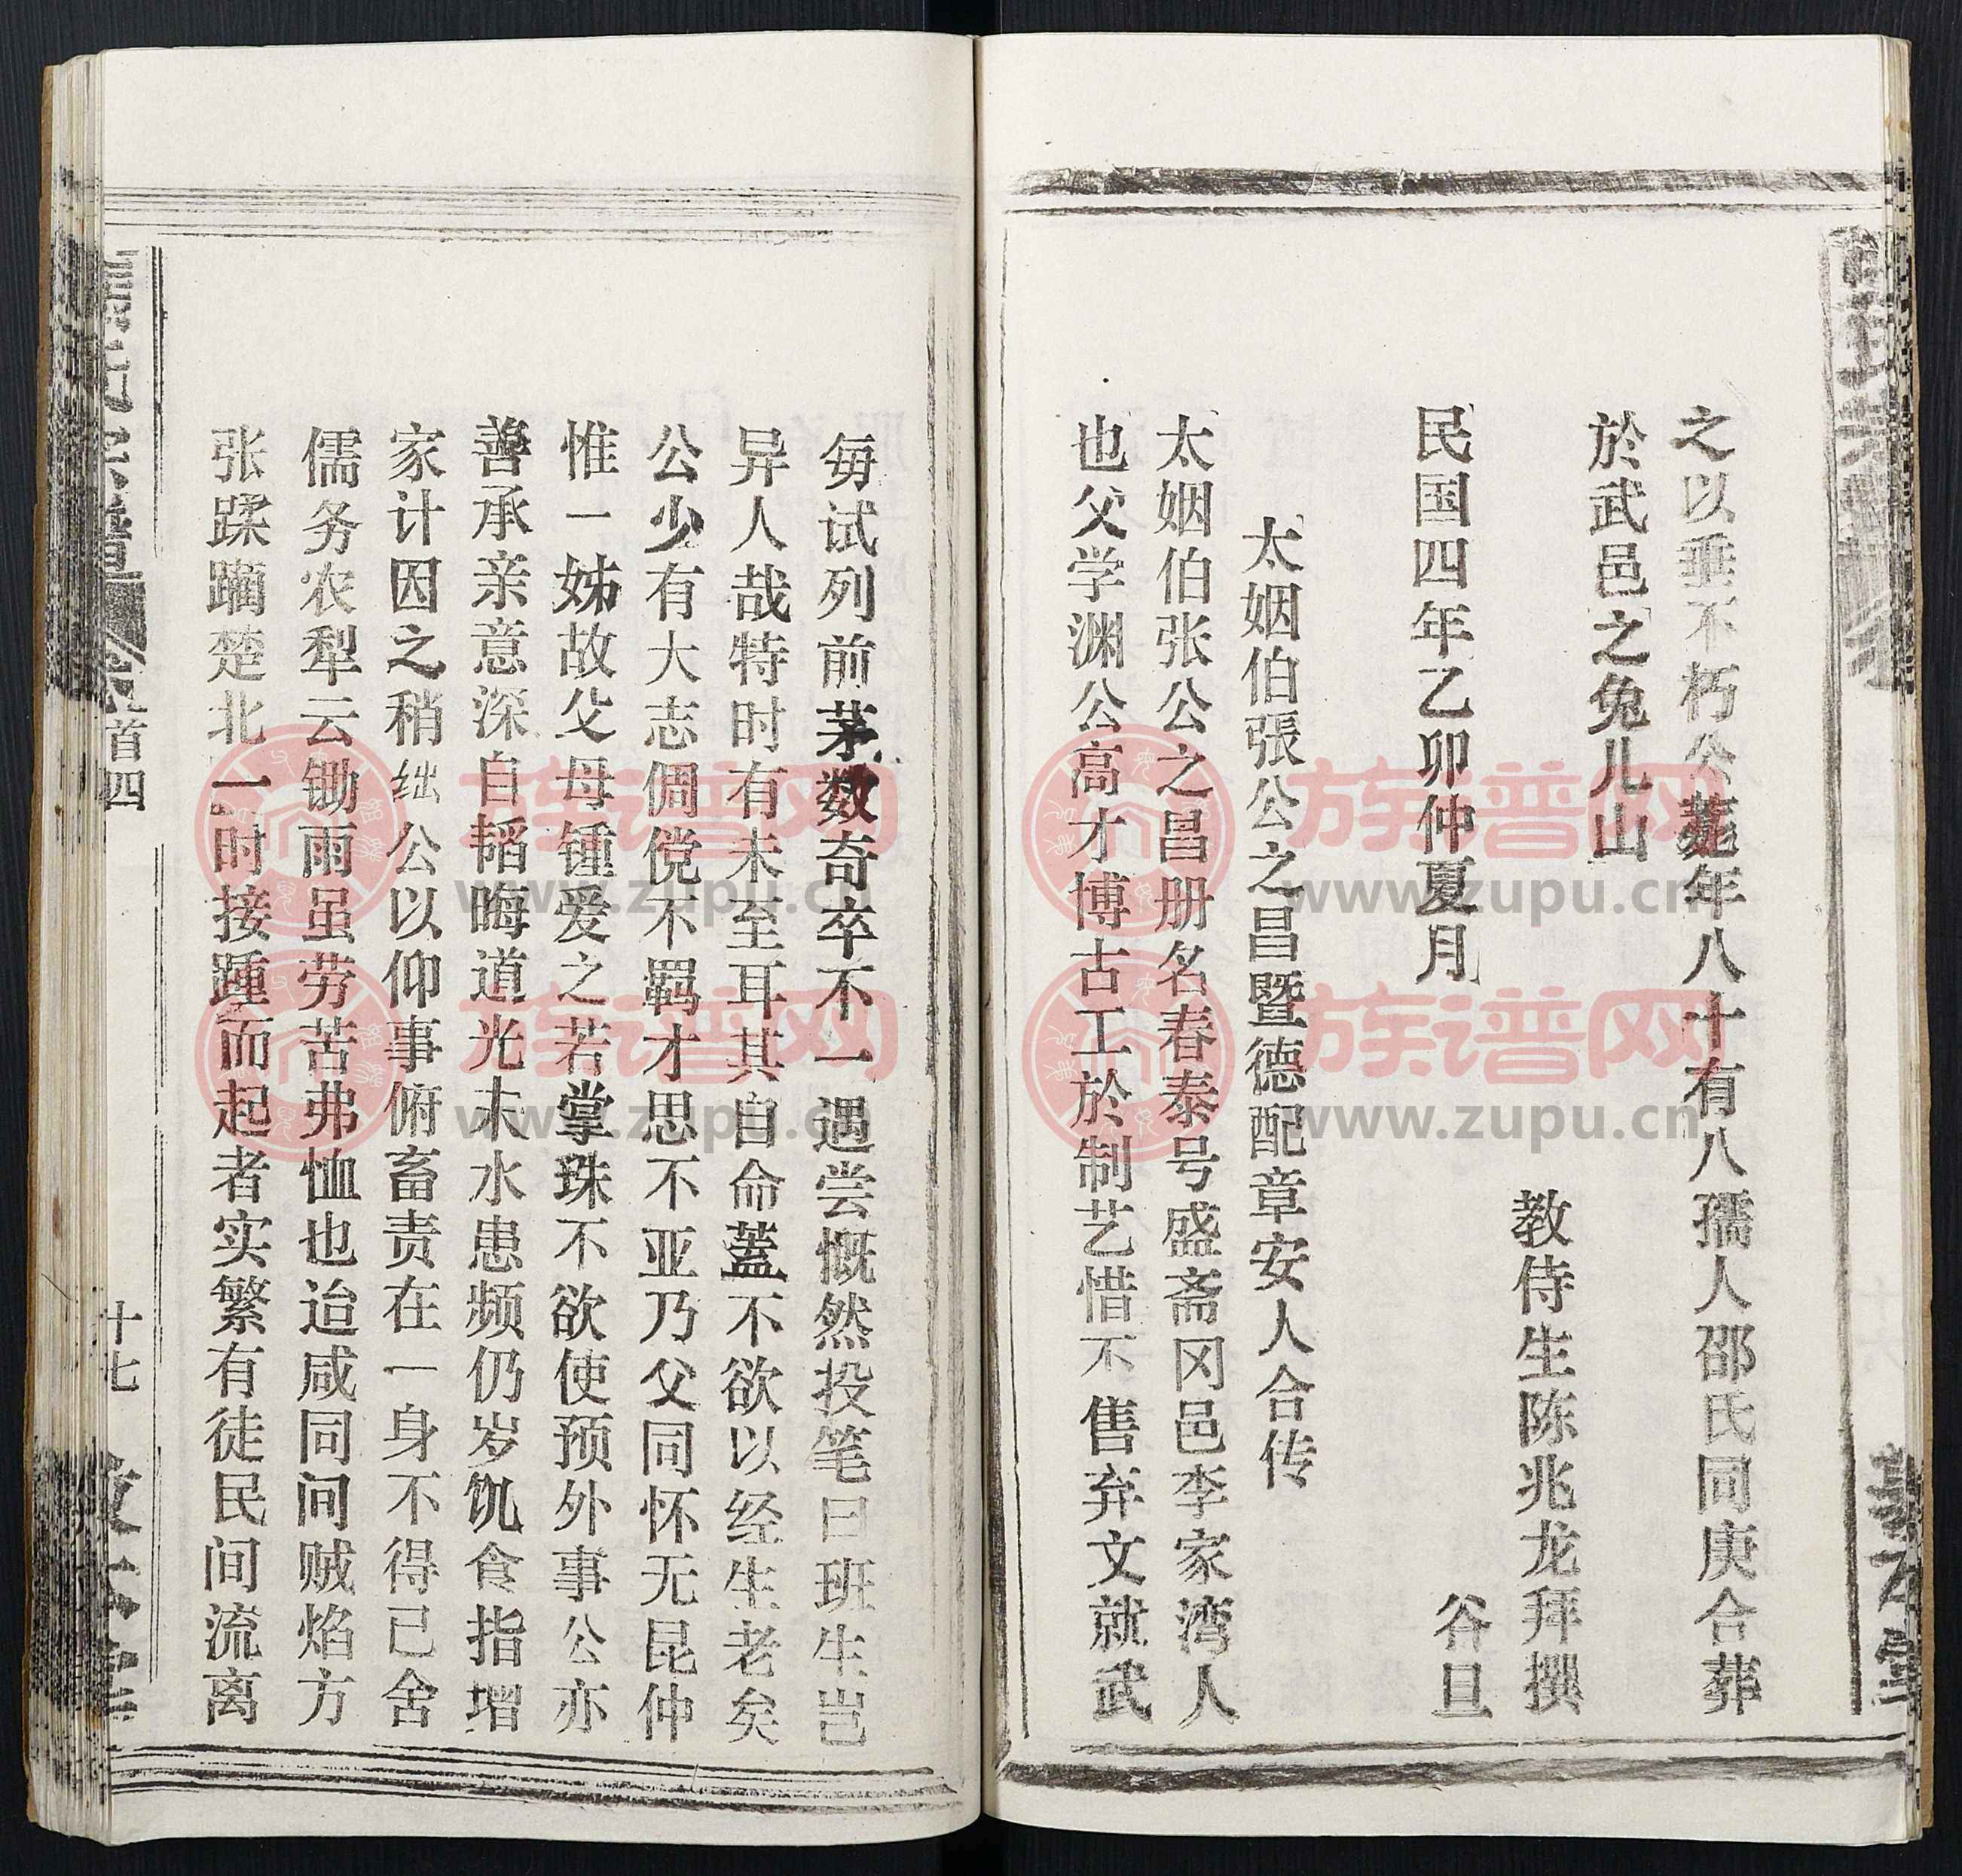 之以垂不朽公薨年八十有八孺人邵氏同庚合葬
於武邑之兔儿山
教侍生陈兆龙拜撰
民国四年乙卯仲夏月
谷旦
太姻伯張公之昌暨德配章安人合传
太姻伯张公之昌册名春泰号盛斋冈邑李家湾人
也父学渊公高才博古工於制艺惜不售弃文就武
每试列前茅数奇卒不一遇尝慨然投笔曰班生岂
异人哉特时有未至耳其自命蓋不欲以经生老矣
公少有大志倜傥不羁才思不亚乃父同怀无昆仲
惟一姊故父母锺爱之若掌珠不欲使预外事公亦
善承亲意深自韬晦道光末水患频仍岁饥食指增
家计因之稍绌公以仰事俯畜责在一身不得已舍
儒务农犁云锄雨虽劳苦弗恤也迨咸同间贼焰方
张蹂躏楚北一时接踵而起者实繁有徒民间流离
氏宗譜
首四
十七
族谱网
www.zupu.cn
族谱网
www.zupu.cn
族谱网
www.zupu.cn
族谱网
www.zupu.cn